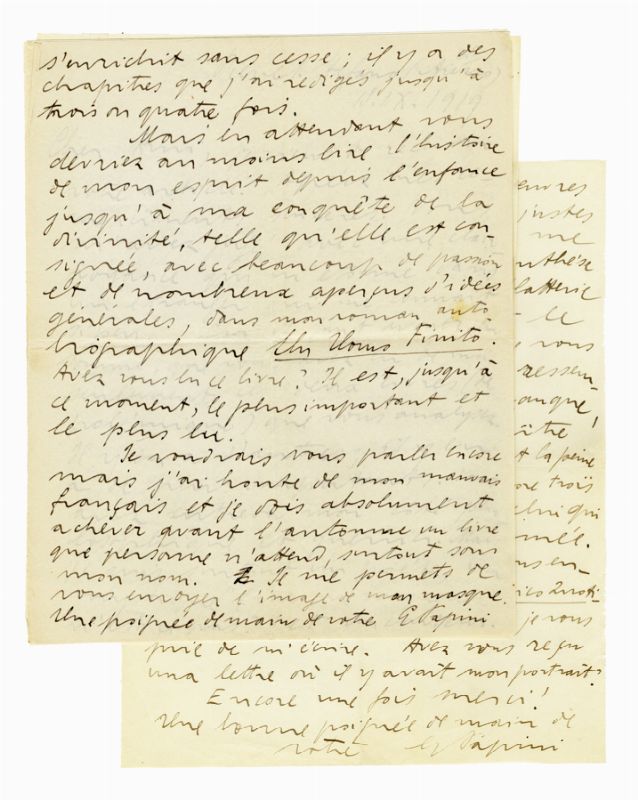 s'enrichit sans cesse ; il y a des
chapitres que j'ai rédigés jusqu'à
trois ou quatre fois.
Mais en attendant vous
devriez au moins lire l'histoire
de mon esprit depuis l'enfance
jusqu'à ma conquête de la
divinité, telle qu'elle est con-
signée, avec beaucoup de passion
et de nombreux aperçus d'idées
générales, dans mon roman auto-
biographique Un Uomo Finito.
Avez vous lu ce livre? Il est, jusqu'à
ce moment, le plus important et
le plus lu.
Je voudrais vous parler encore
mais j'ai honte de mon mauvais
français et je dois absolument
achever avant l'automne un livre
que personne n'attend, surtout sous
mon nom. Je me permets de
vous envoyer l'image de mon masque.
Une poignée de main de votre G Papini
justes
me
le
vous
ressem-
la peine
trois
qui
en-
je vous
prie de m'écrire. Avez vous reçu
una lettre où il y avait mon portrait?
Encore une fois merci!
Une bonne poignée de main de
votre G Papini